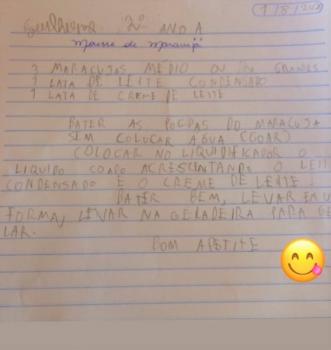 Guilherme 2º ANO A
Mousse de Maracujá
3 MARACUJÁS MÉDIO OU 2 GRANDES
1 LATA DE LEITE CONDENSADO
1 LATA DE CREME DE LEITE
BATER AS POLPAS DO MARACUJA
SEM COLOCAR AGUA (COAR)
COLOCAR NO LIQUIDIFICADOR O
LIQUIDO COADO ACRESCENTANDO O LEITE
CONDENSADO E O CREME DE LEITE.
BATER BEM, LEVAR EM U
FORMA, LEVAR NA GELADEIRA PARA GE
LAR.
BOM APETITE